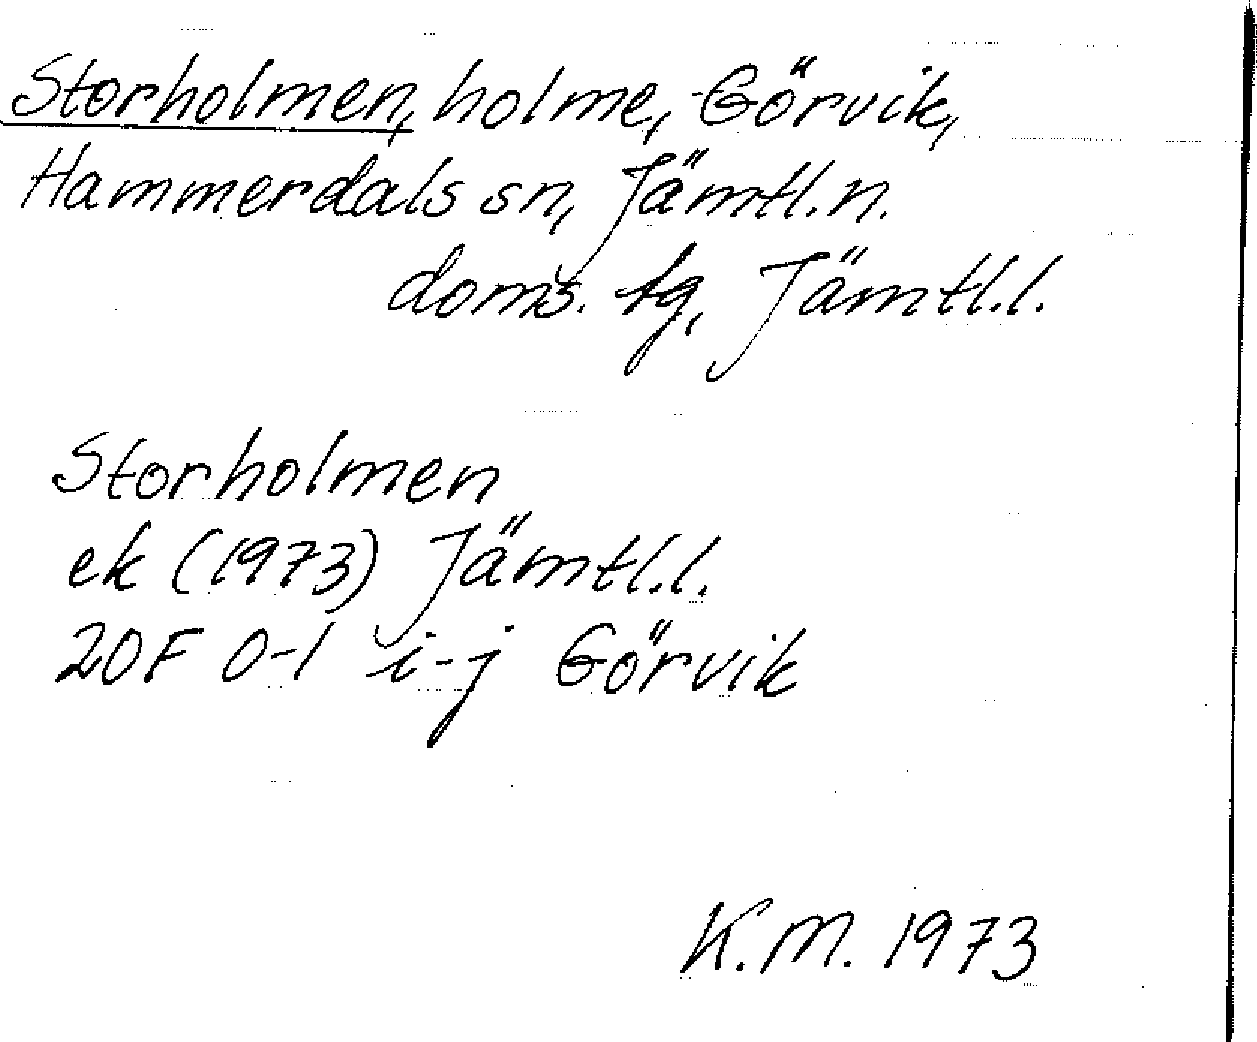 Storholmen, holme, Görvik,
Hammerdals sn, Jämtl. n.
doms. tg, Jämtl. l.
Storholmen
ek (1973) Jämtl. l.
20F 0-1 i-j Görvik
K.M. 1973